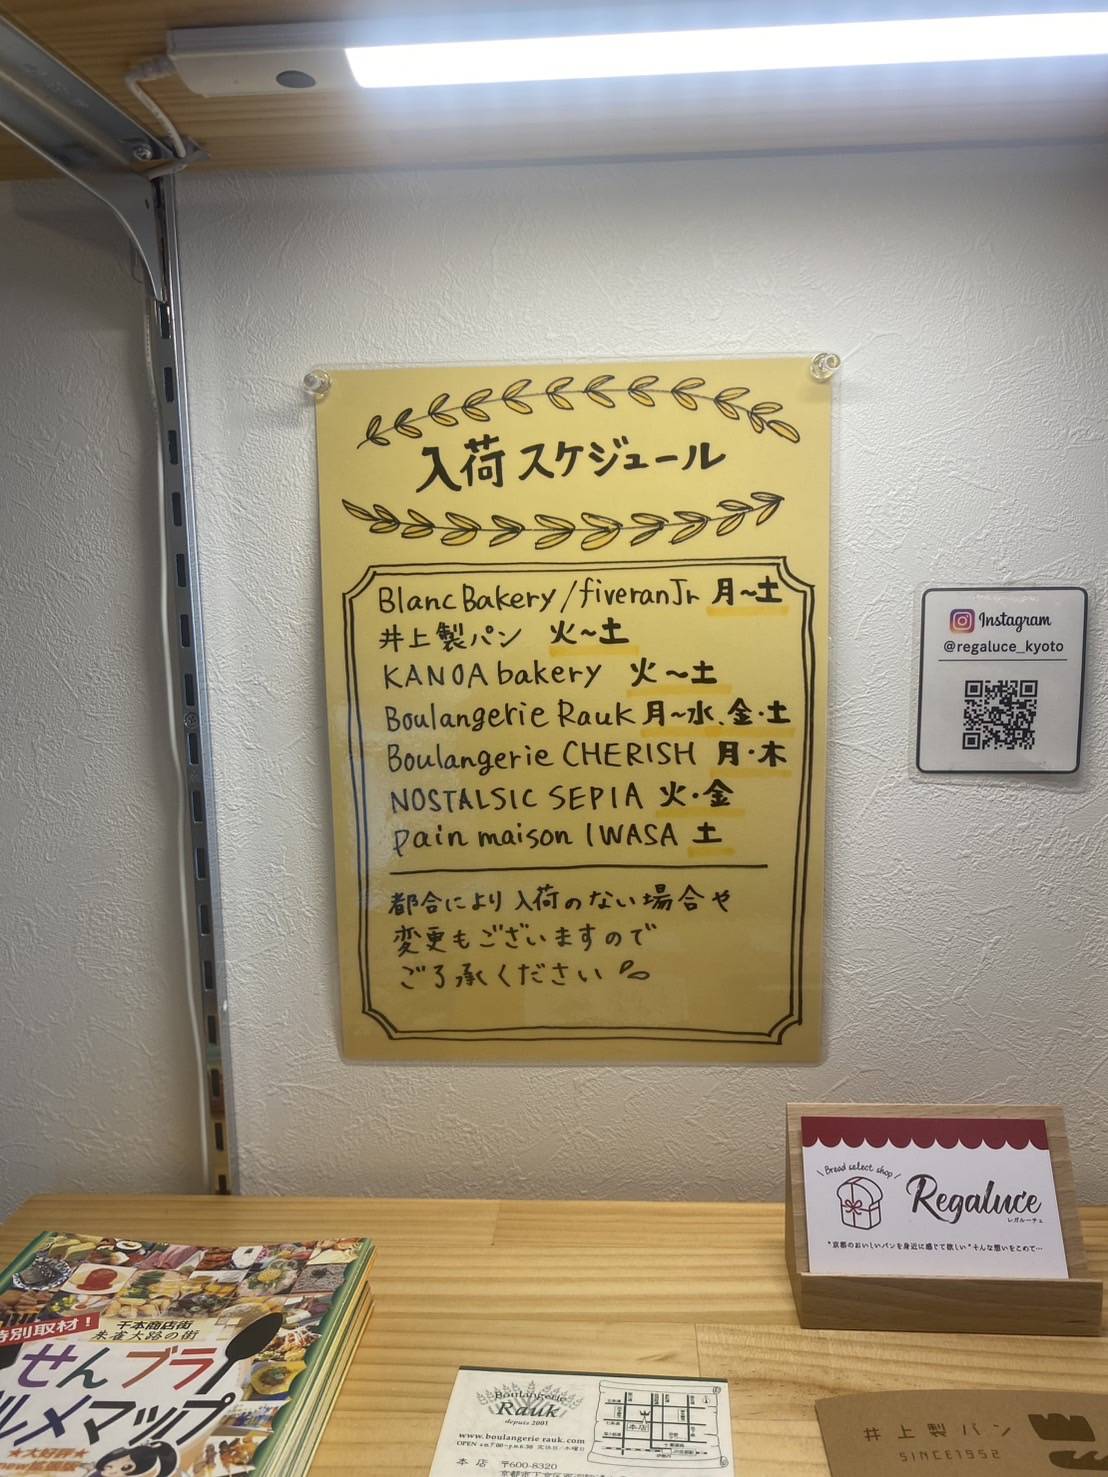 入荷スケジュール
Blanc Bakery/fiveranJr 月~土
井上製パン 火~土
KANOA bakery 火~土
Boulangerie Rauk 月~水、金・土
Boulangerie CHERISH 月・木
NOSTALSIC SEPIA 火・金
pain maison IWASA 土
都合により入荷のない場合や
変更もございますので
ご了承ください
Instagram
@regaluce_kyoto
Bread select shop
Regaluce
レガルーチェ
"京都のおいしいパンを身近に感じて欲しい"そんな想いをこめて…
特別取材!
千本商店街
朱雀大路の街
せんブラ
ルメマップ
★大好評★
new拡張版
Boulangerie
Rauk
depuis 2001
www.boulangerie-rauk.com
OPEN a.m.7:00~p.m.6:30 定休日/木曜日
本店
本店 〒600-8320
井上製パン
SINCE1952